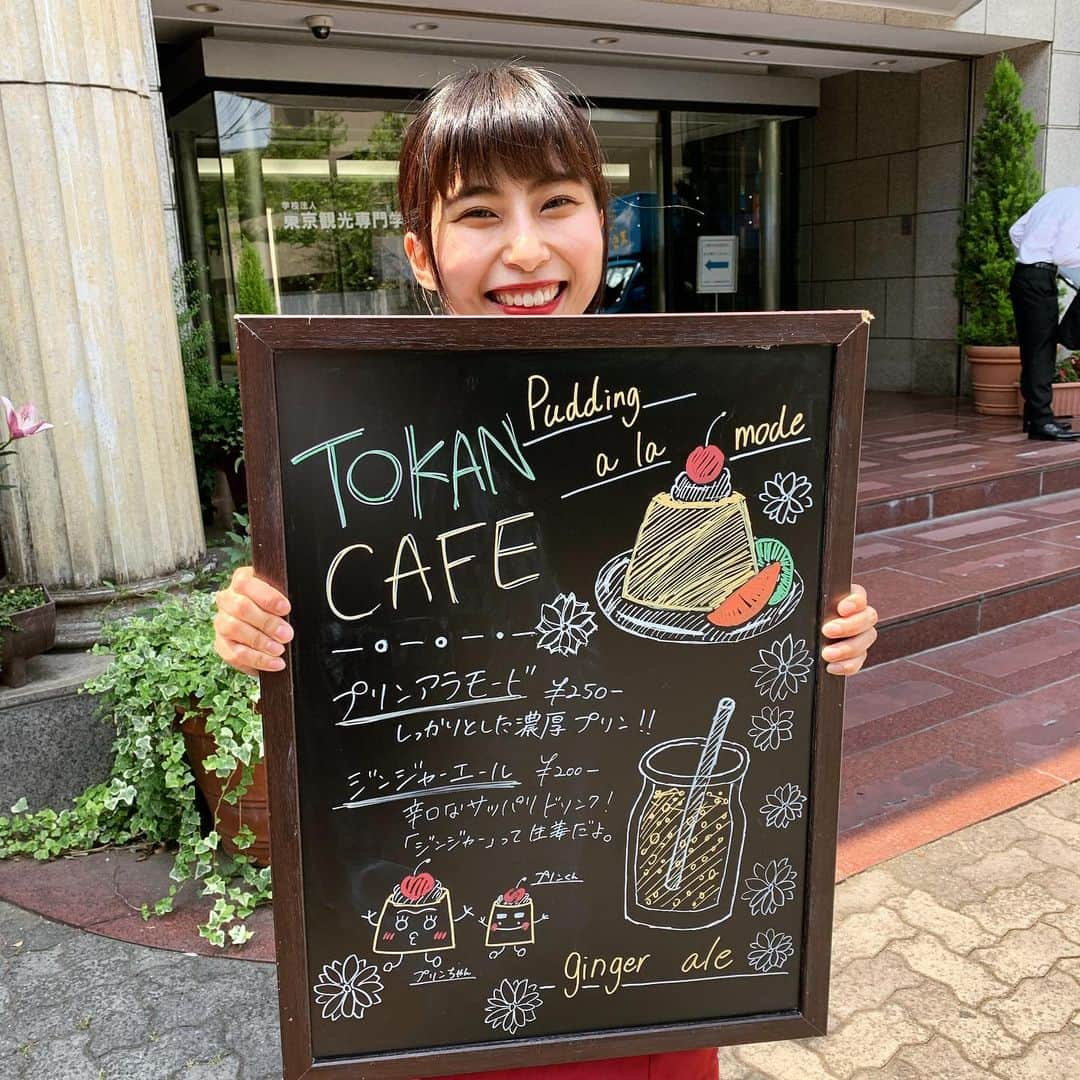 学校法人
東京観光専門学
TOKAN
CAFE
Pudding
a la mode
プリンアラモード ¥250-
しっかりとした濃厚プリン!!
ジンジャーエール ¥200-
辛口なサッパリドリンク!
「ジンジャー」って生薬だよ。
プリンくん
プリンちゃん
ginger ale